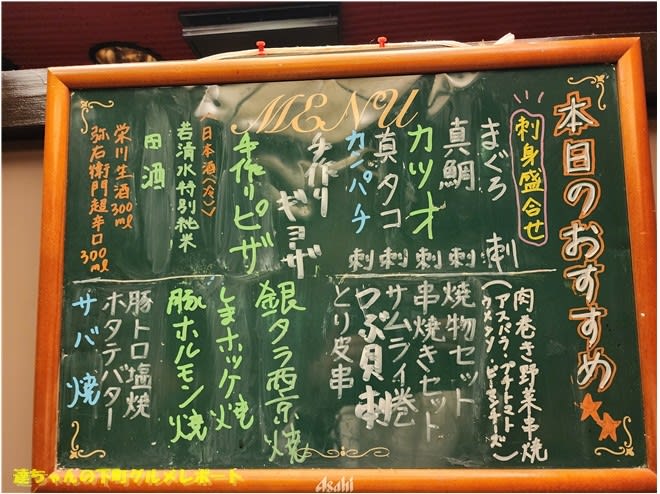 MENU
本日のおすすめ
刺身盛合せ
まぐろ 刺
真鯛 刺
カツオ 刺
真タコ 刺
カンパチ 刺
手作りギョザ
手作りピザ
日本酒(冷)
若清水特別純米
田酒
栄川生酒300ml
弥右衛門超辛口300ml
肉巻き野菜串焼
(アスパラ・プチトマト
ウメタソ・ピーマンチーズ)
焼物セット
串焼きセット
サムライ巻
つぶ貝 刺
とり皮串
銀タラ西京焼
しまホッケ焼
豚ホルモン焼
豚トロ塩焼
ホタテバター
サバ焼
Asahi
達ちゃんの下町グルメレポート